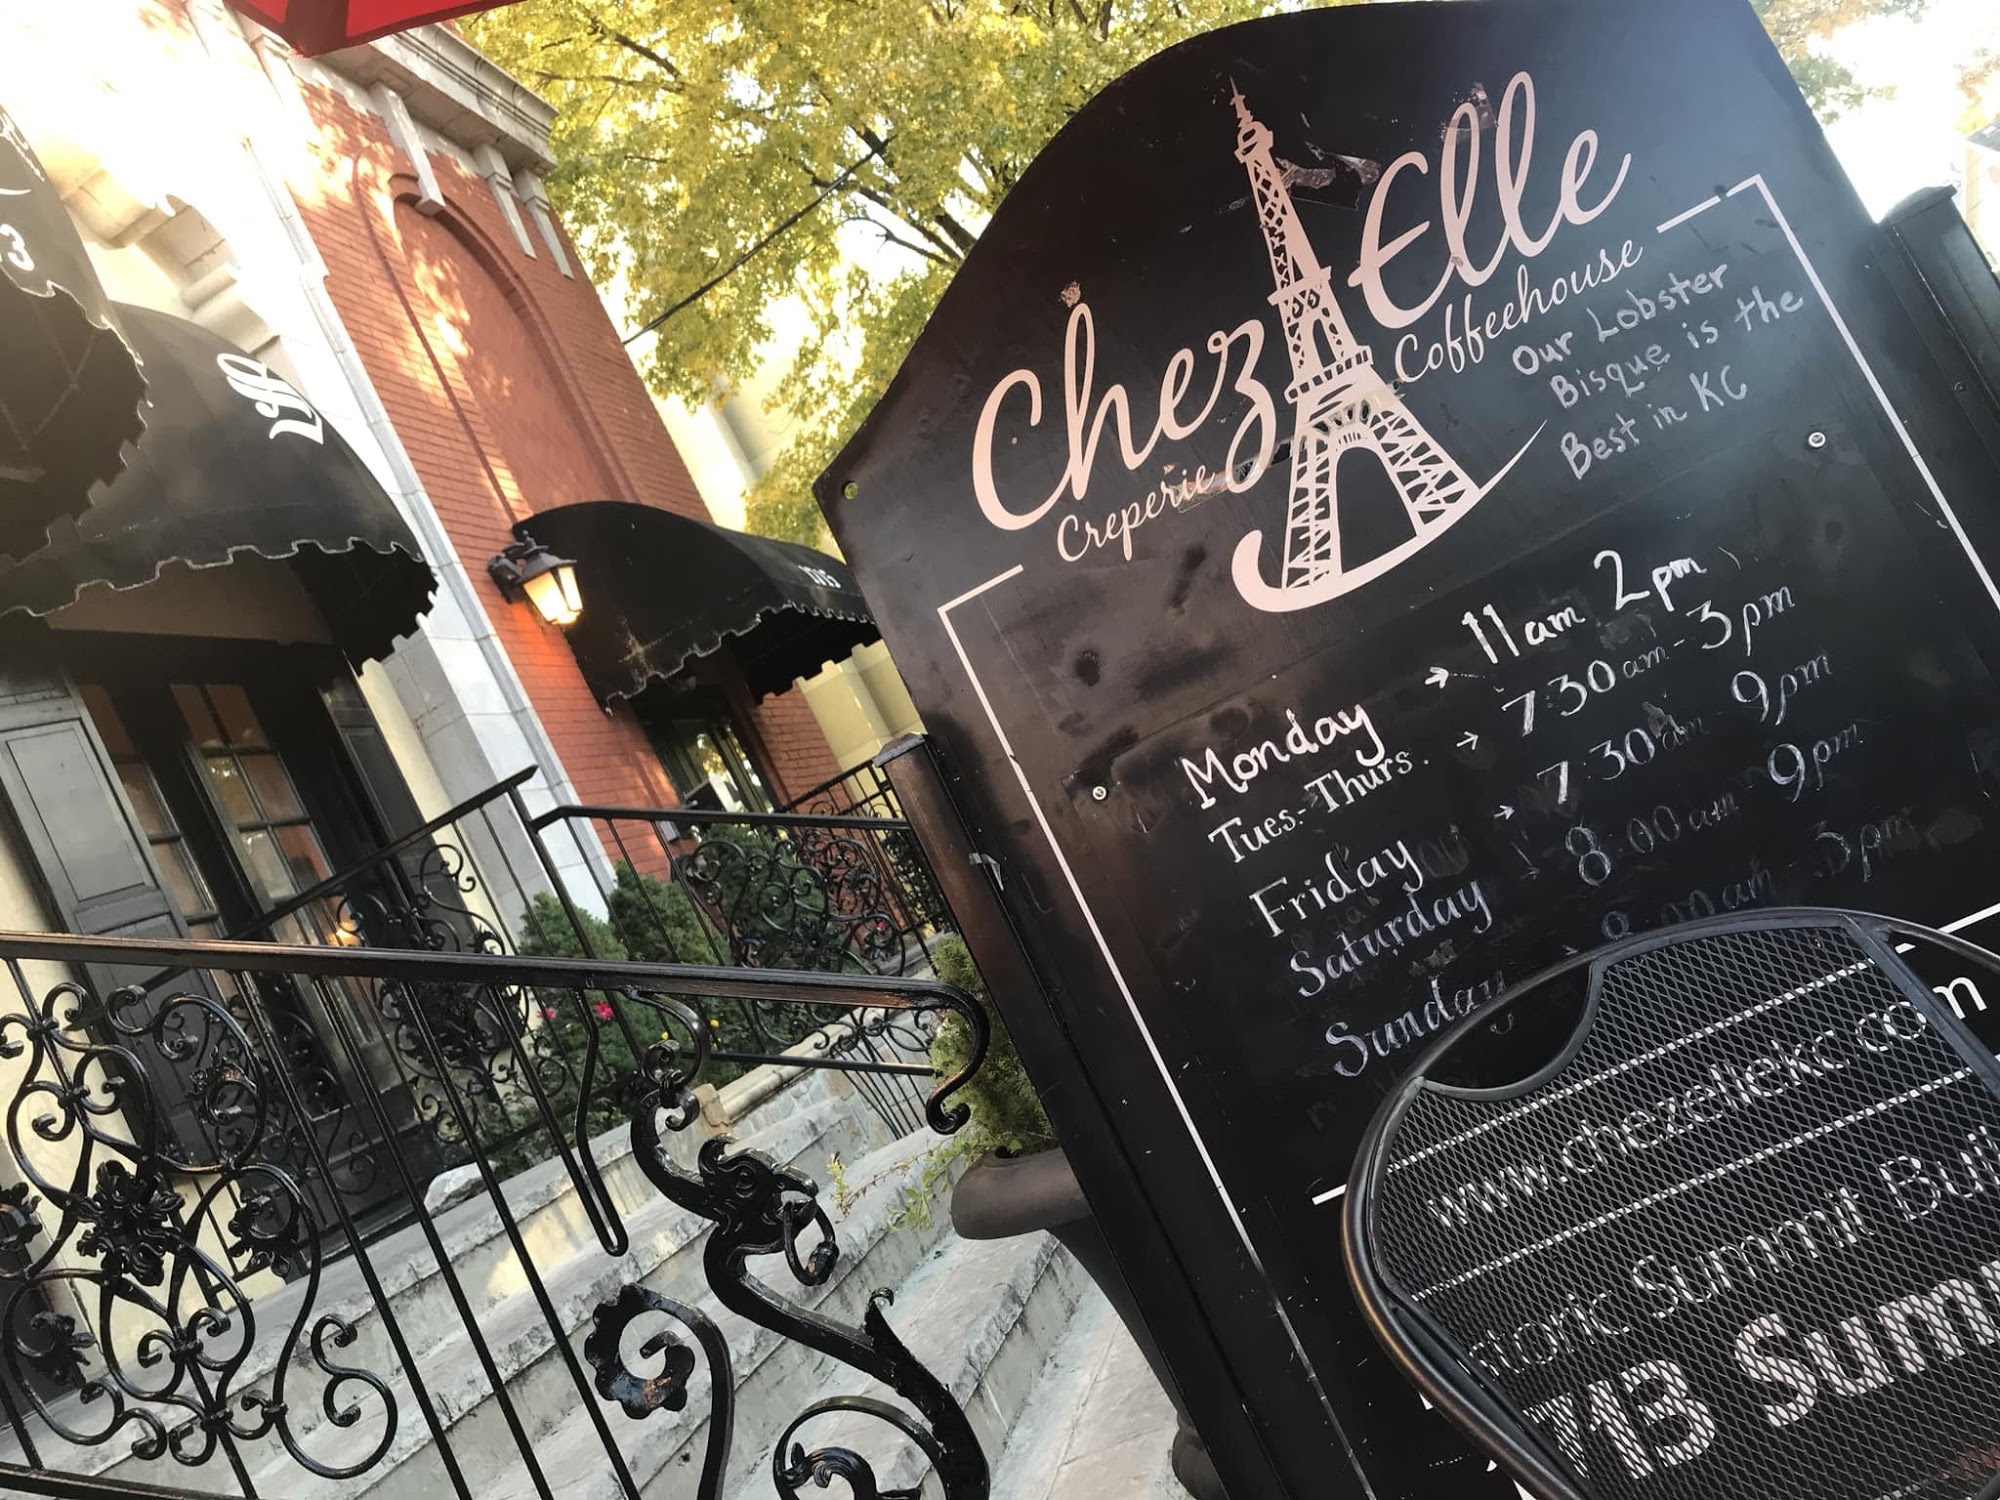 Chez Elle
Creperie Coffeehouse
Our Lobster
Bisque is the
Best in KC
Monday → 11am 2pm
Tues.-Thurs. → 7:30am - 3pm
Friday → 7:30am - 9pm
Saturday 8:00am - 9pm
Sunday 8:00am - 3pm
www.chezellekc.com
Summit
713 Summ